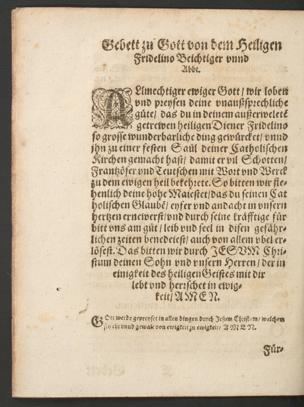 Gebett zu Gott von dem Heiligen
Fridelino Beichtiger vnnd
Abbt.
ALlmechtiger ewiger Gott / wir loben
vnd preysen deine vnaußsprechliche
güte / das du in deinem außerwelete
getrewen heiligen Diener Fridelino
so grosse wunderbarliche ding gewürcket / vnnd
jhn zu einer festen Saül deiner Catholischen
Kirchen gemacht hast / damit er vil Schotten /
Frantzöser vnd Teutschen mit Wort vnd Werck
zu dem ewigen heil bekehrete. So bitten wir fle-
henlich deine hohe Maiestet / das du seinen Cat
holischen Glaube / eyfer vnd andacht in vnsern
hertzen ernewerst / vnd durch seine kräfftige für
bitt vns am güt / leib vnd seel in disen gefähr-
lichen zeiten benedeiest / auch von allem vbel er-
lösest. Das bitten wir durch JESVM Chri-
stum deinen Sohn vnd vnsern Herren / der in
einigkeit des heiligen Geistes mit dir
lebt vnd herrschet in ewig-
keit / AMEN.
GOtt werde gepreyset in allen dingen durch Jesum Christum / welchem
sey ehr vnnd gewalt von ewigkeit zu ewigkeit / AMEN.
Für-